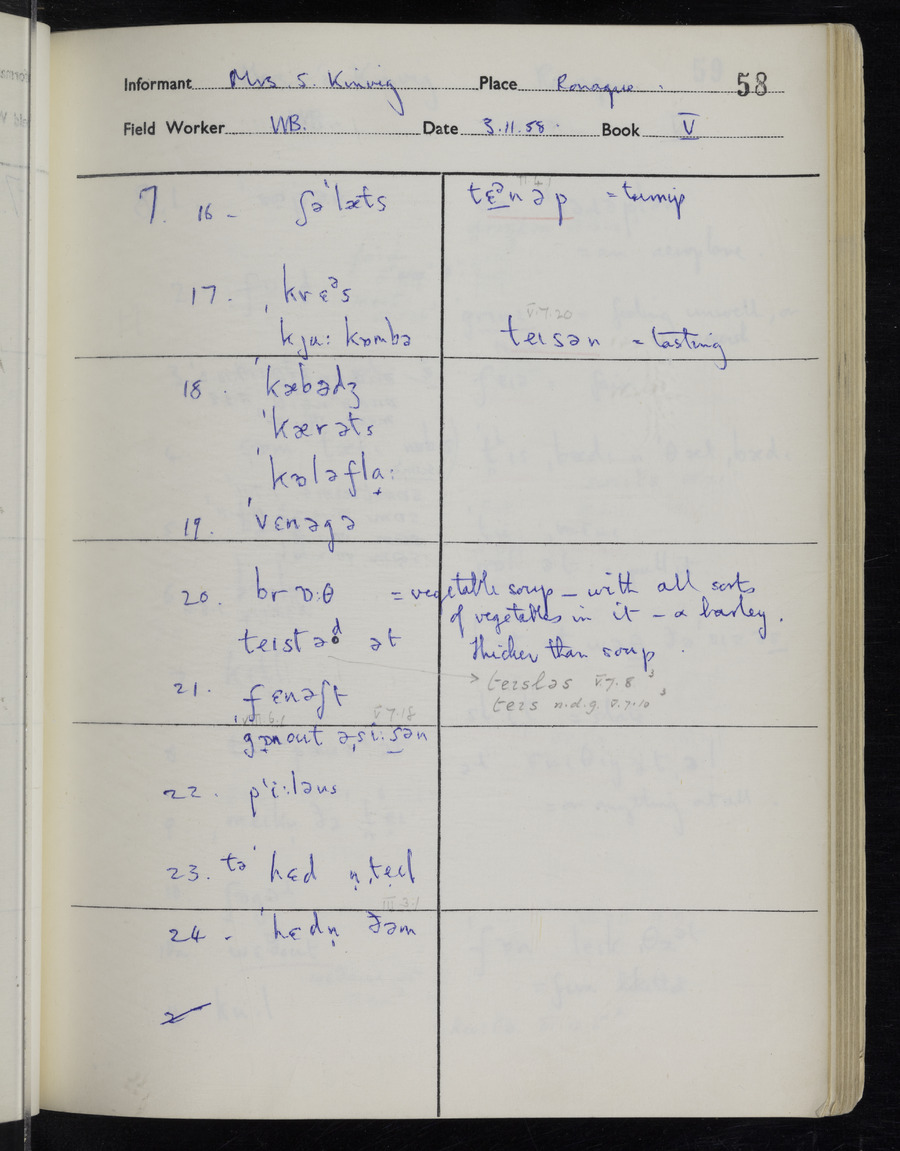 Informant Mrs. S. Kinvig Place Ronague. 58
Field Worker WB. Date 3.11.58. Book V
7. 16 - ʃəˈlæts
tɛᵊnəp = turnip
17. ˌkrɛᵊs
V.7.20
kju: kɒmbə
teɪsən = tasting
18. ˈkæbədʒ
ˈkærəts
ˈkɒləflạ:
19. ˈvɛnəgə
20. brɒ:θ = vegetable soup - with all sorts
of vegetables in it - & barley.
teɪstəd ət
thicker than soup.
21. ˌfɛnəʃt
> teɪsləs V.7.8
teɪs n.d.g. V.7.10
V.7.18
gɒn out əˌsi:sən
22. pˈi:ləus
23. təˈ hɛd n̩ˌteɪl
III.3.1
24 - ˈhɛdn̩ ðəm